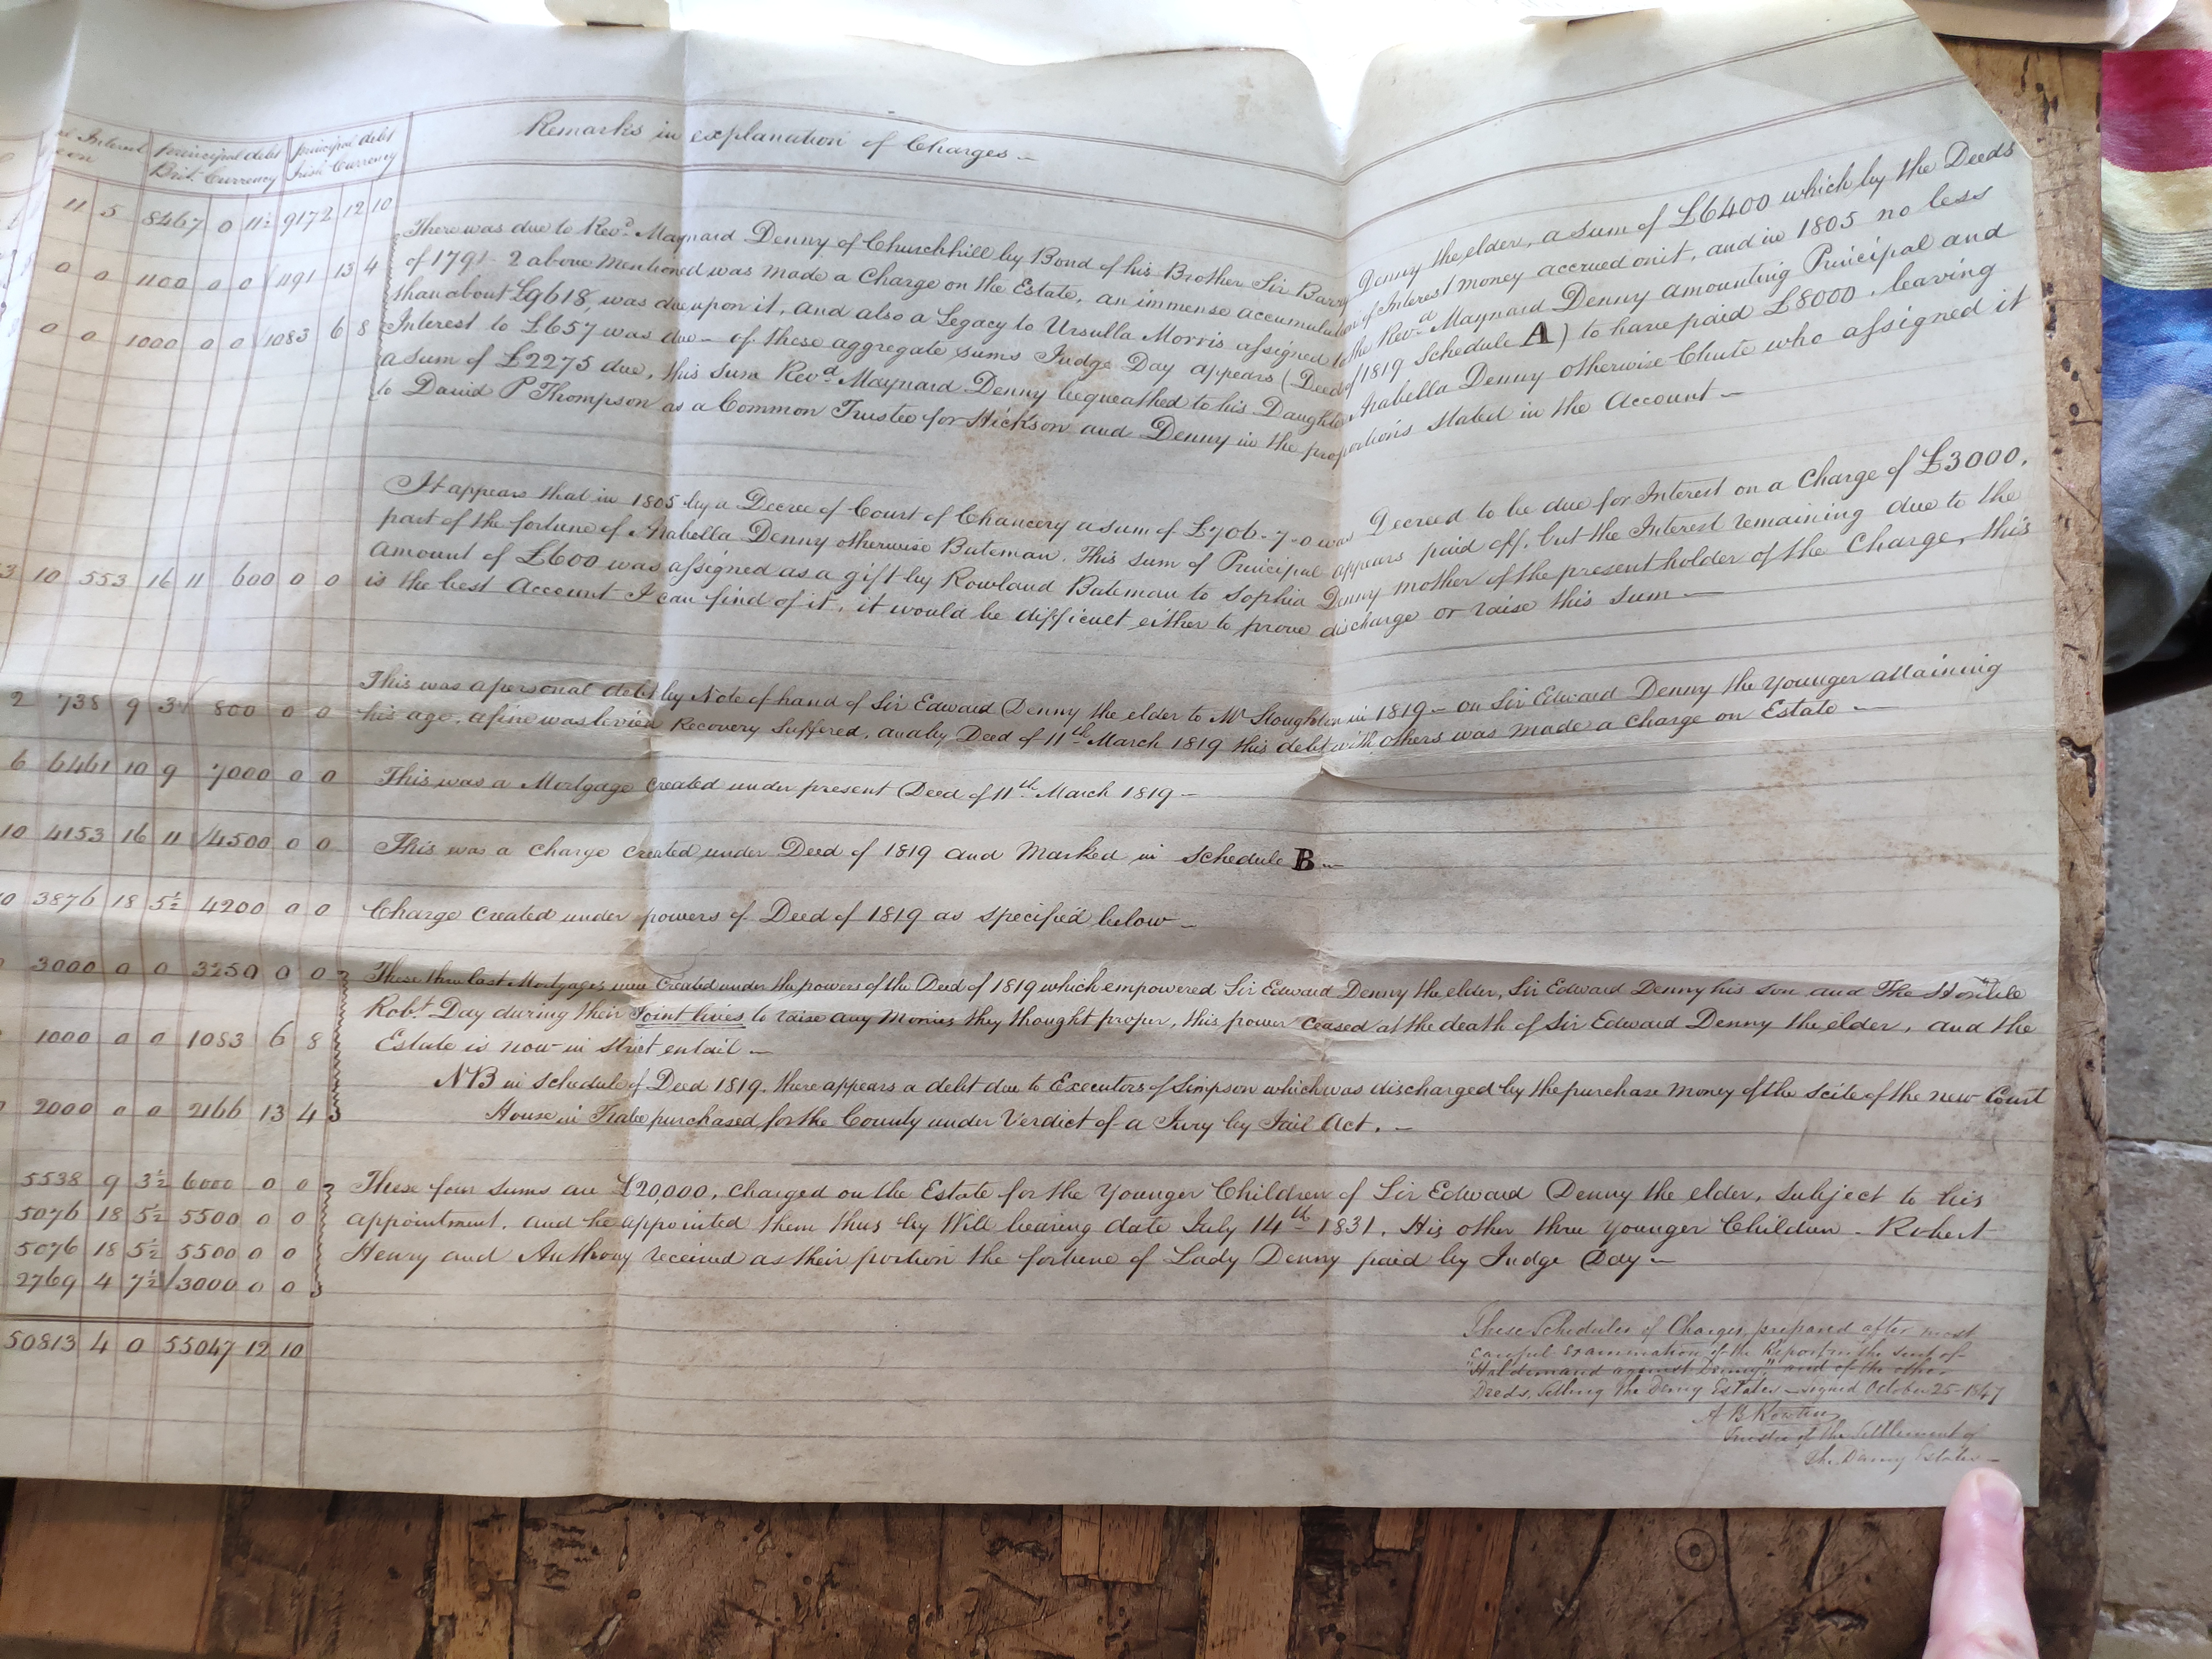 Interest principal debt principal debt
Brit. Currency Irish Currency
Remarks in explanation of Charges —
11 5 8467 0 11½ 9172 12 10
There was due to Revd. Maynard Denny of Churchhill by Bond of his Brother Sir Barry Denny the elder, a sum of £6400 which by the Deeds
0 0 1100 0 0 1191 13 4
of 1791-2 above mentioned was made a Charge on the Estate, an immense accumulation of Interest money accrued on it, and in 1805 no less
than about £9618, was due upon it, and also a Legacy to Ursulla Morris assigned to the Revd. Maynard Denny amounting Principal and
0 0 1000 0 0 1083 6 8
Interest to £657 was due — of these aggregate sums Judge Day appears (Deed of 1819 Schedule A) to have paid £8000, leaving
a sum of £2275 due, this sum Revd. Maynard Denny bequeathed to his Daughter Arabella Denny otherwise Chute who assigned it
to David P Thompson as a Common Trustee for Hickson and Denny in the proportions stated in the Account —
It appears that in 1805 by a Decree of Court of Chancery a sum of £706-7-0 was Decreed to be due for Interest on a Charge of £3000,
part of the fortune of Arabella Denny otherwise Bateman. This sum of Principal appears paid off, but the Interest remaining due to the
3 10 553 16 11 600 0 0
amount of £600 was assigned as a gift by Rowland Bateman to Sophia Denny mother of the present holder of the Charge, this
is the best Account I can find of it, it would be difficult either to prove discharge or raise this sum —
This was a personal debt by Note of hand of Sir Edward Denny the elder to Mr Stoughton in 1819 — on Sir Edward Denny the Younger attaining
2 738 9 3½ 800 0 0
his age, a fine was levied Recovery Suffered, and by Deed of 11th March 1819 this debt with others was made a Charge on Estate —
6 6461 10 9 7000 0 0
This was a Mortgage created under present Deed of 11th March 1819 —
10 4153 16 11 4500 0 0
This was a Charge created under Deed of 1819 and Marked in schedule B —
10 3876 18 5½ 4200 0 0
Charge created under powers of Deed of 1819 as specified below —
3000 0 0 3250 0 0
These three last Mortgages were Created under the powers of the Deed of 1819 which empowered Sir Edward Denny the elder, Sir Edward Denny his son and The Honble
Robt. Day during their Joint lives to raise any Monies they thought proper, this power Ceased at the death of Sir Edward Denny the elder, and the
1000 0 0 1083 6 8
Estate is now in strict entail —
NB in schedule of Deed 1819, there appears a debt due to Executors of Simpson which was discharged by the purchase Money of the scite of the new Court
2000 0 0 2166 13 4
House in Tralee purchased for the County under Verdict of a Jury by Jail Act. —
5538 9 3½ 6000 0 0
These four sums are £20,000, charged on the Estate for the Younger Children of Sir Edward Denny the elder, subject to his
5076 18 5½ 5500 0 0
appointment, and he appointed them thus by Will bearing date July 14th 1831. His other three Younger Children - Robert
5076 18 5½ 5500 0 0
Henry and Anthony received as their portion the fortune of Lady Denny paid by Judge Day —
2769 4 7½ 3000 0 0
50813 4 0 55047 12 10
These Schedules of Charges, prepared after most
careful examination of the Report in the suit of
"Haldemand against Denny," and of the other
Deeds, settling the Denny Estates — signed October 25 - 1847
A B Rowan
Trustee of the Settlement of
The Denny Estates —